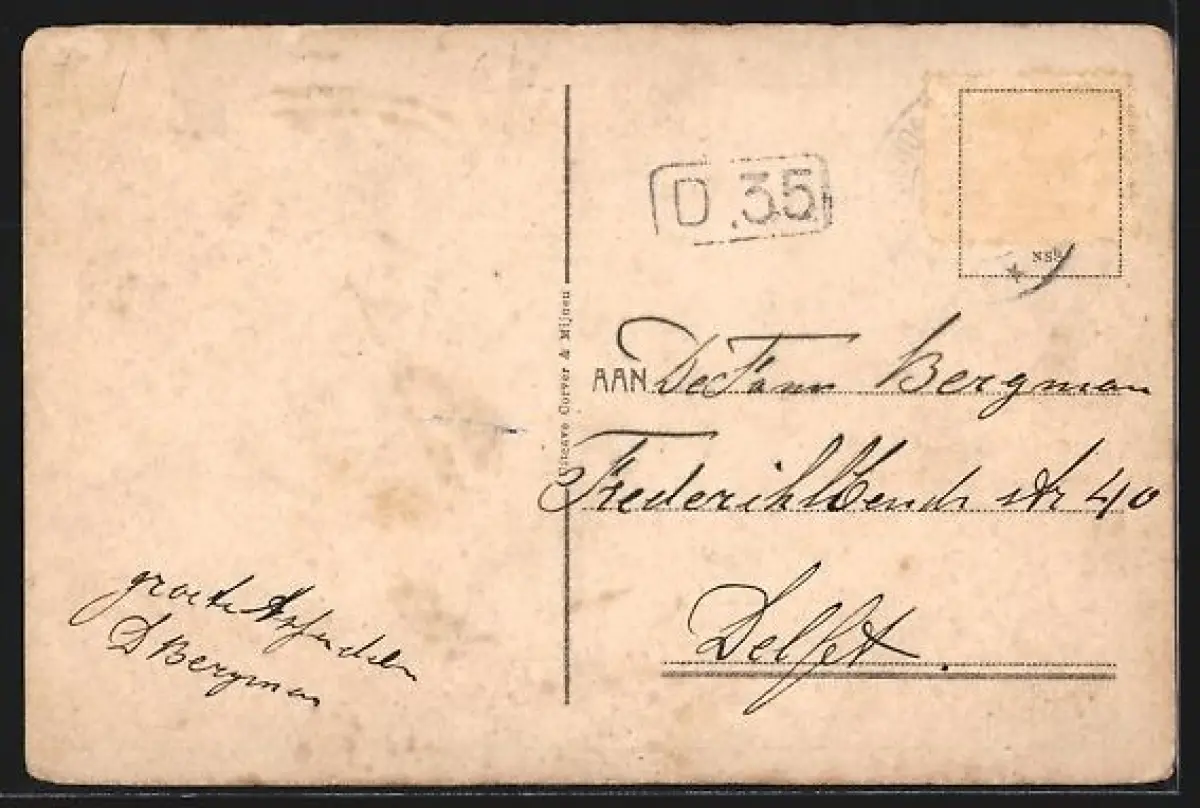 D. 35
NSh
Uitgave Corver & Mijnen
AAN De Fam Bergman
Frederik str 40
Delft.
groete
D Bergman